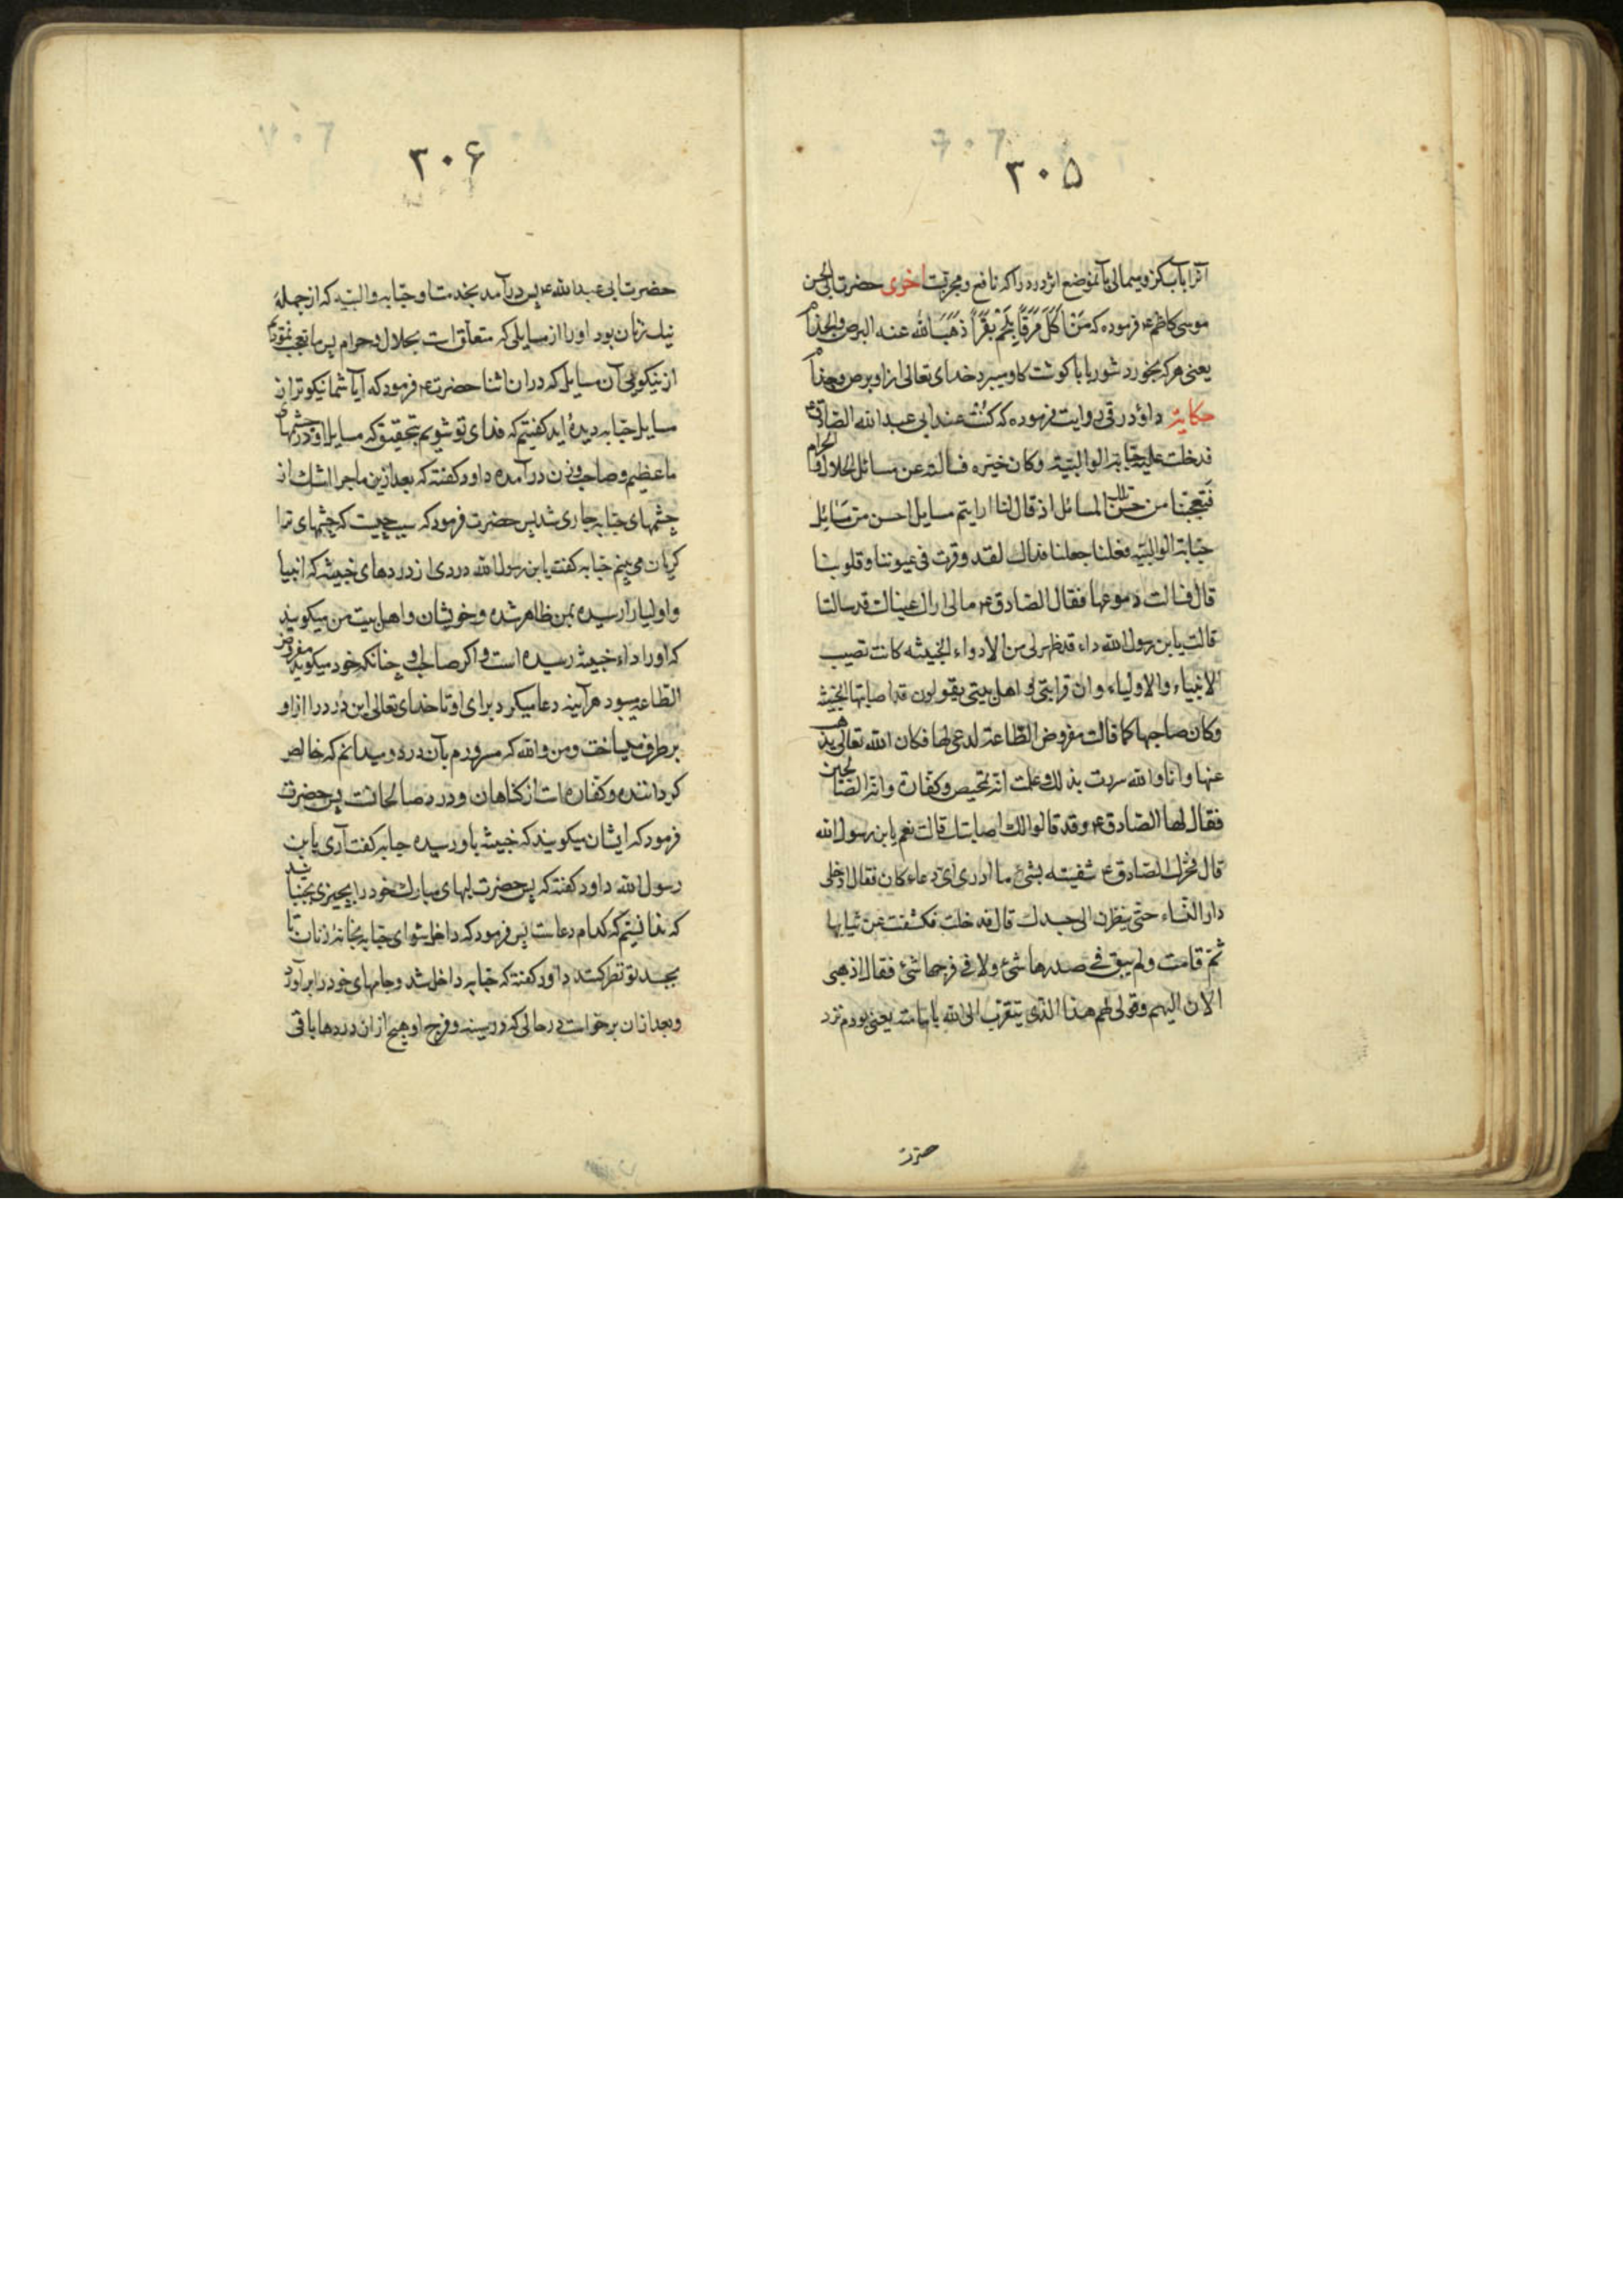 ۳۰۵
آنرا بآب کز و بیمالی بآنموضع اثر درد را که نافع و مجربست اخری حضرت ابی الحسن
موسی کاظم ع فرموده که من اکل مرقا بلحم بقرا ذهب الله عنه البرص والجذام
یعنی هر که بخورد شوربا با کوشت کاو میبرد خدای تعالی از او برص و جذام
حکایت داود رقی روایت فرموده که کنت عند ابی عبد الله الصادق ع
فدخلت علیه حبابة الوالبیه وکان خیره فسالته عن مسائل الحلال والحرام
فتعجبنا من حسن تلک المسائل اذ قال لنا ارایتم مسایل احسن من مسائل
حبابة الوالبیه فقلنا جعلنا فداک لقد وقرت فی عیوننا وقلوبنا
قال فسالت دموعها فقال الصادق ع مالی اری عیناک قد سالتا
قالت یا بن رسول الله داء قد ظهر لی من الادواء الخبیثه کانت تصیب
الانبیاء والاولیاء وان قرابتی و اهل بیتی یقولون قد اصابتها الخبیثه
وکان صاحبها کما قالت مفروض الطاعة لدعی لها فکان الله تعالی یذهب
عنها وانا والله سررت بذلک وعلمت انه تمحیص وکفارة وانه الصالحین
فقال لها الصادق ع وقد قالوا لک اصابتک قالت نعم یا بن رسول الله
قال فحرک الصادق ع شفیته بشیء ما ادری ای دعاء کان فقال ادخلی
دار النساء حتی ینظرن الی جسدک قال فدخلت فکشفت عن ثیابها
ثم قامت ولم یبق فی صدرها شیء ولا فی فرجها شیء فقال اذهبی
الان الیهم وقولی لهم هذا الذی یتقرب الی الله بامامته یعنی بودم نزد
۳۰۶
حضرت ابی عبد الله ع پس درآمد بخدمت او حبابه والبیه که از جمله
نیک زنان بود او را از مسایلی که متعلق است بحلال و حرام پس ما تعجب نمودیم
از نیکویی آن مسایل که در ان اثنا حضرت ع فرمود که آیا شما نیکوتر از
مسایل حبابه دیده اید کفتیم که فدای تو شویم بتحقیق که مسایل او در چشمهای
ما عظیم و صاحب وزن درآمده داود کفته که بعد ازین ماجرا اشک از
چشمهای حبابه جاری شد پس حضرت فرمود که سبب چیست که چشمهای ترا
کریان می بینم حبابه کفت یا بن رسول الله دردی از دردهای خبیثه که انبیا
و اولیا را رسیده بمن ظاهر شده و خویشان و اهل بیت من میکویند
که او را داء خبیثه رسیده است و اکر صاحب او چنانکه خود میکوید مفروض
الطاعه میبود هرآینه دعا میکرد برای او تا خدای تعالی این درد را از او
برطرف میساخت و من والله که مسرورم بآن درد و میدانم که خالص
کرداننده و کفاره است از کناهان و درد صالحانست پس حضرت
فرمود که ایشان میکویند که خبیثه باو رسیده حبابه کفت آری یا بن
رسول الله داود کفته که پس حضرت لبهای مبارک خود را بچیزی بجنبانید
که ندانستم که کدام دعاست پس فرمود که داخل شو ای حبابه بخانه زنان تا
بجسد تو نظر کنند داود کفته که حبابه داخل شد و جامهای خود را برآورد
و بعد از ان برخواست در حالی که در سینه و فرج او هیچ از ان دردها باقی